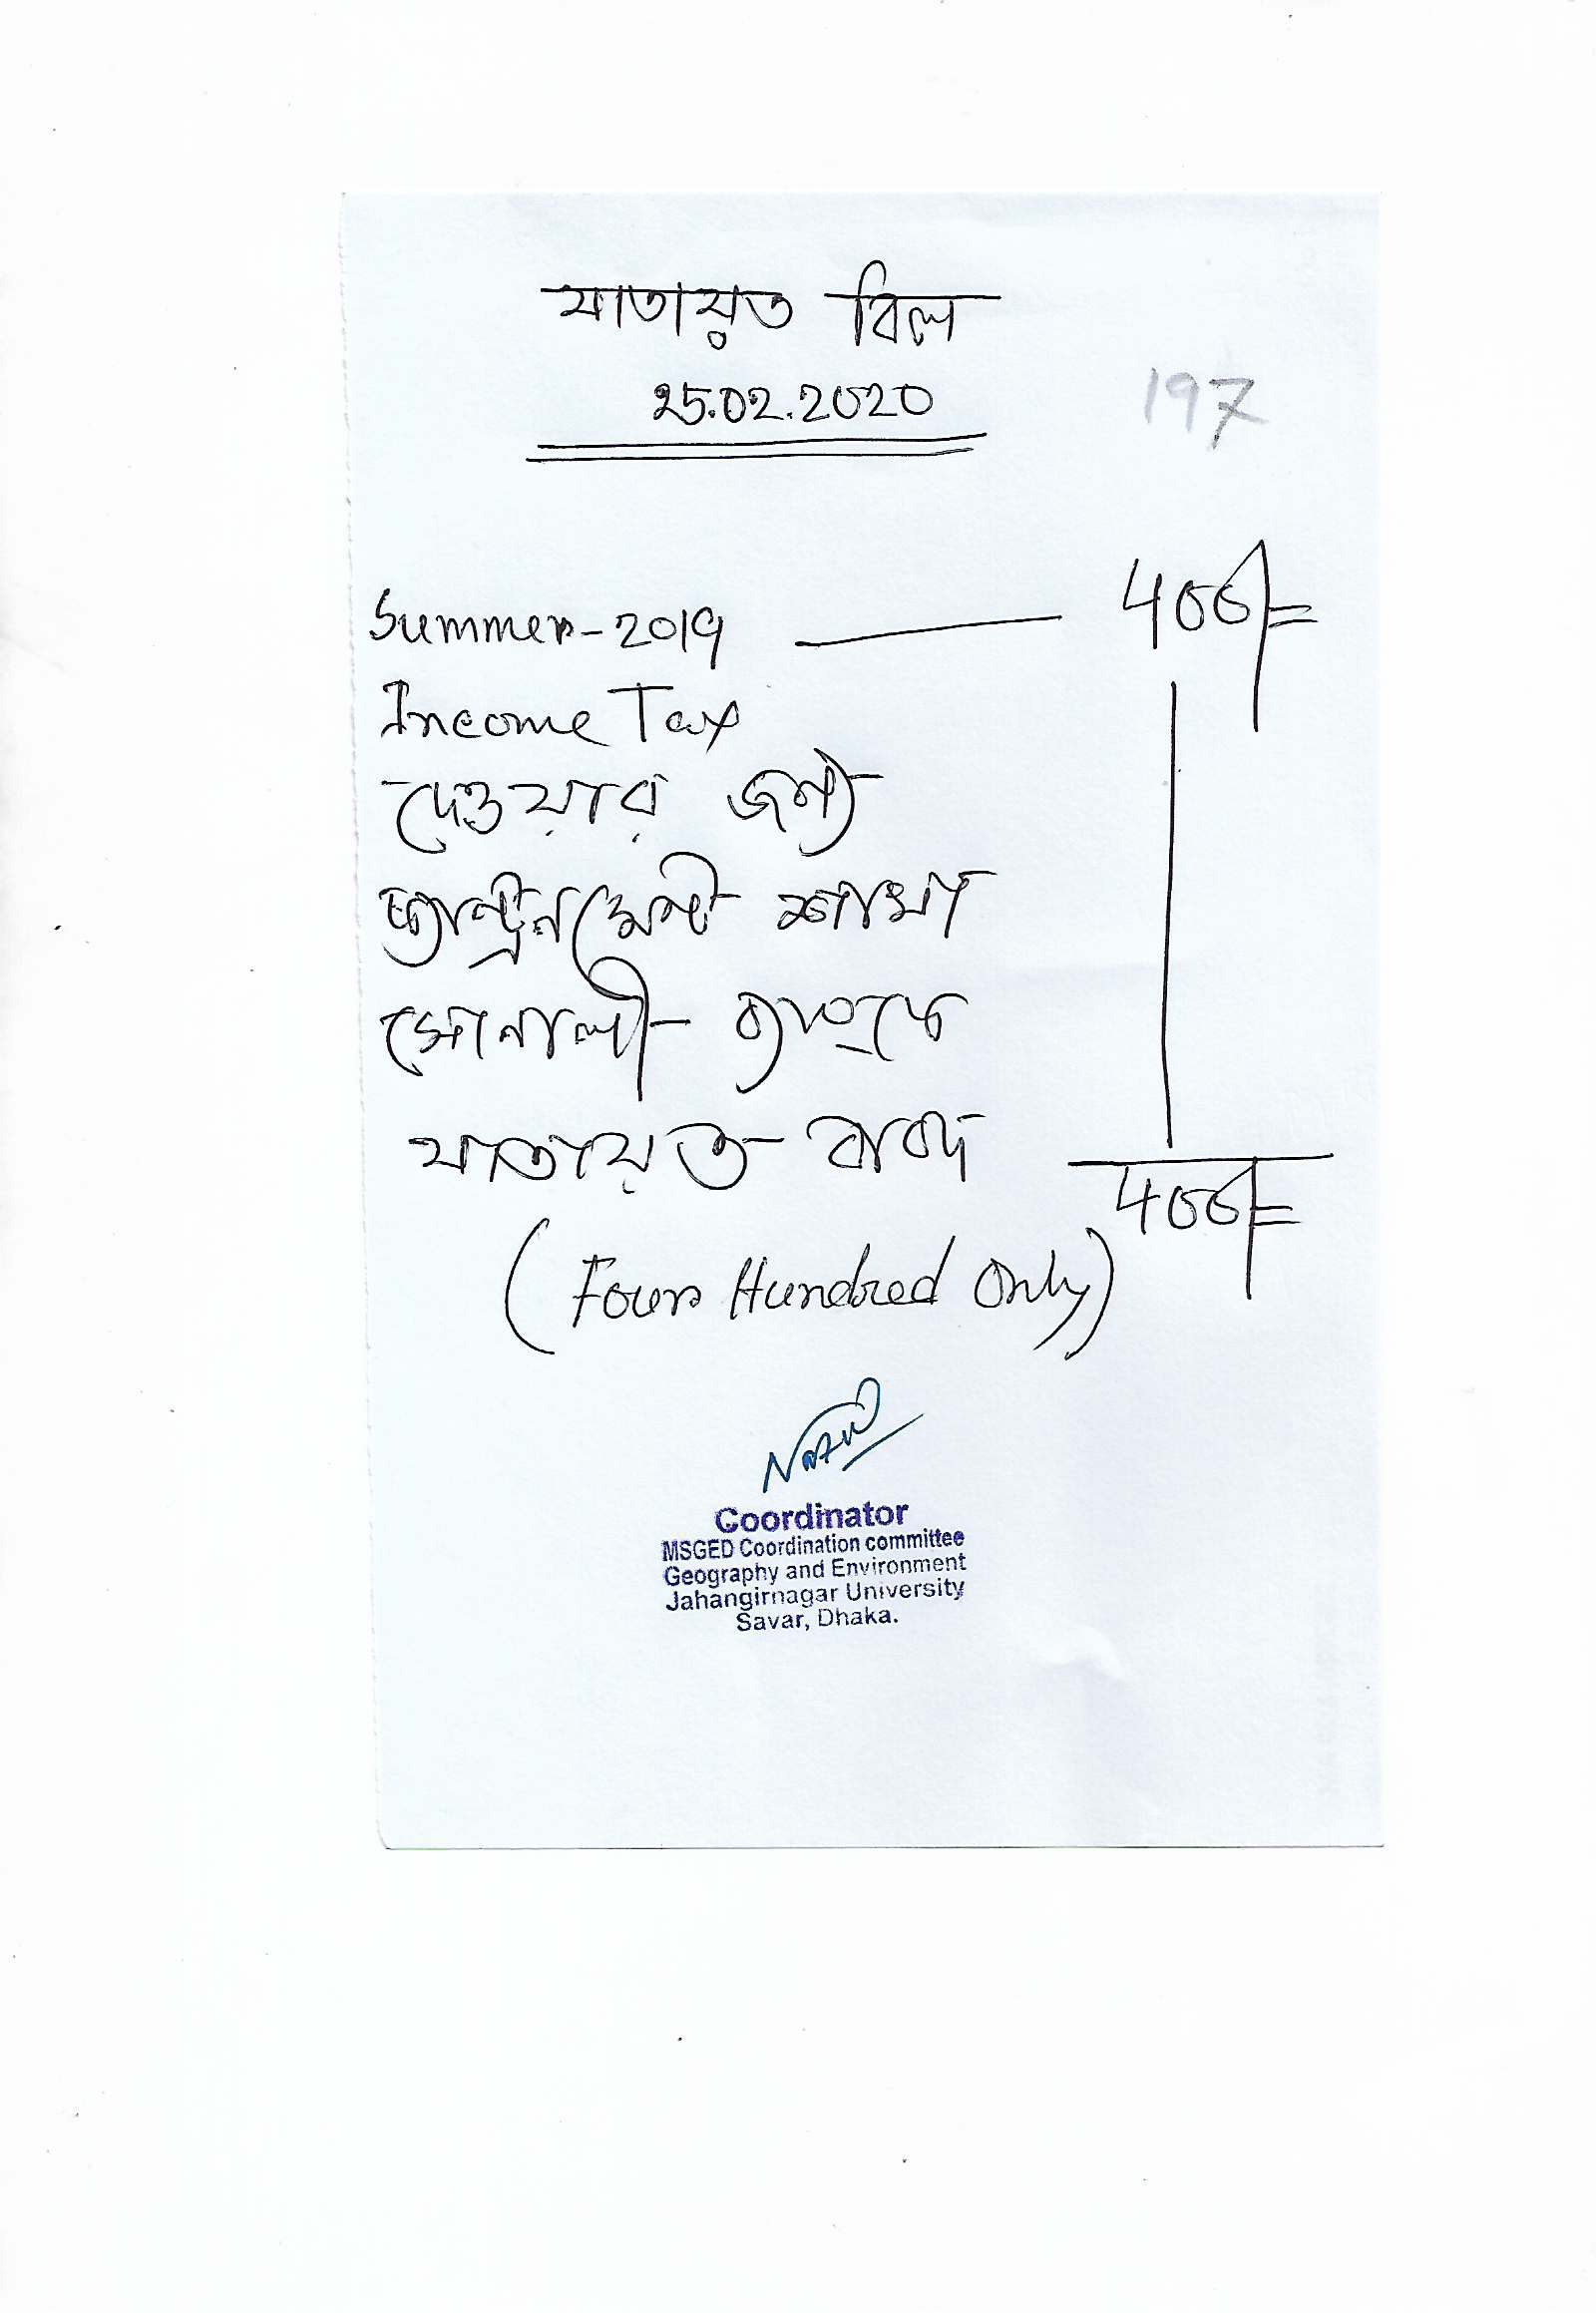 যাতায়ত বিল
25.02.2020
197
Summer-2019 — 400/=
Income Tax
দেওয়ার জন্য
ক্যান্টনমেন্ট শাখা
সোনালী ব্যাংকে
যাতায়ত বাবদ
400/=
(Four Hundred Only)
Coordinator
MSGED Coordination committee
Geography and Environment
Jahangirnagar University
Savar, Dhaka.